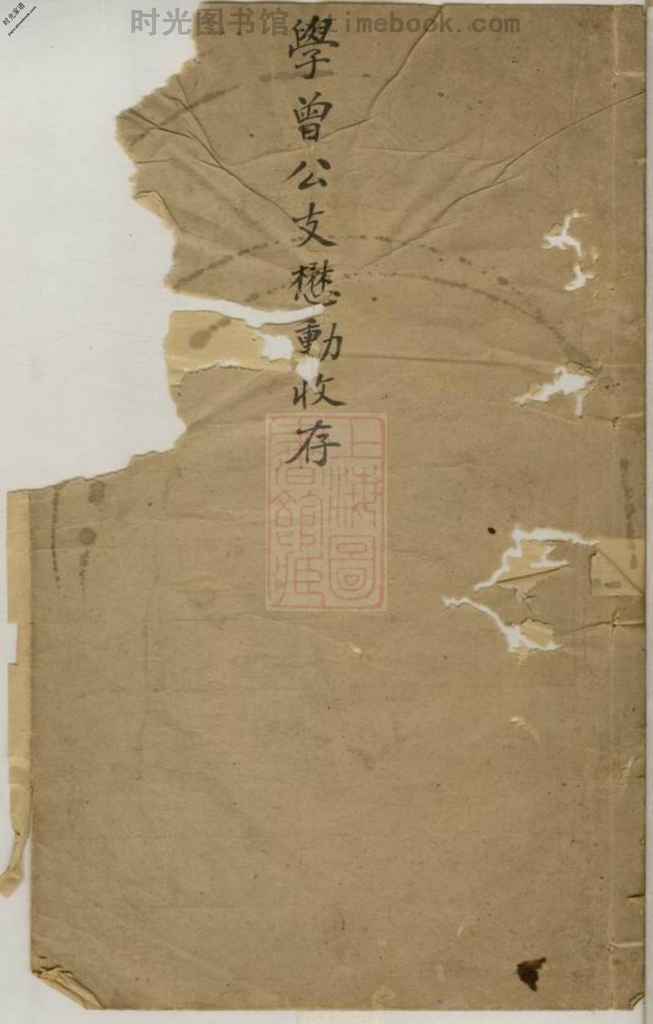 时光图书馆 timebook.com
學曾公支懋動收存
上海圖
書館藏